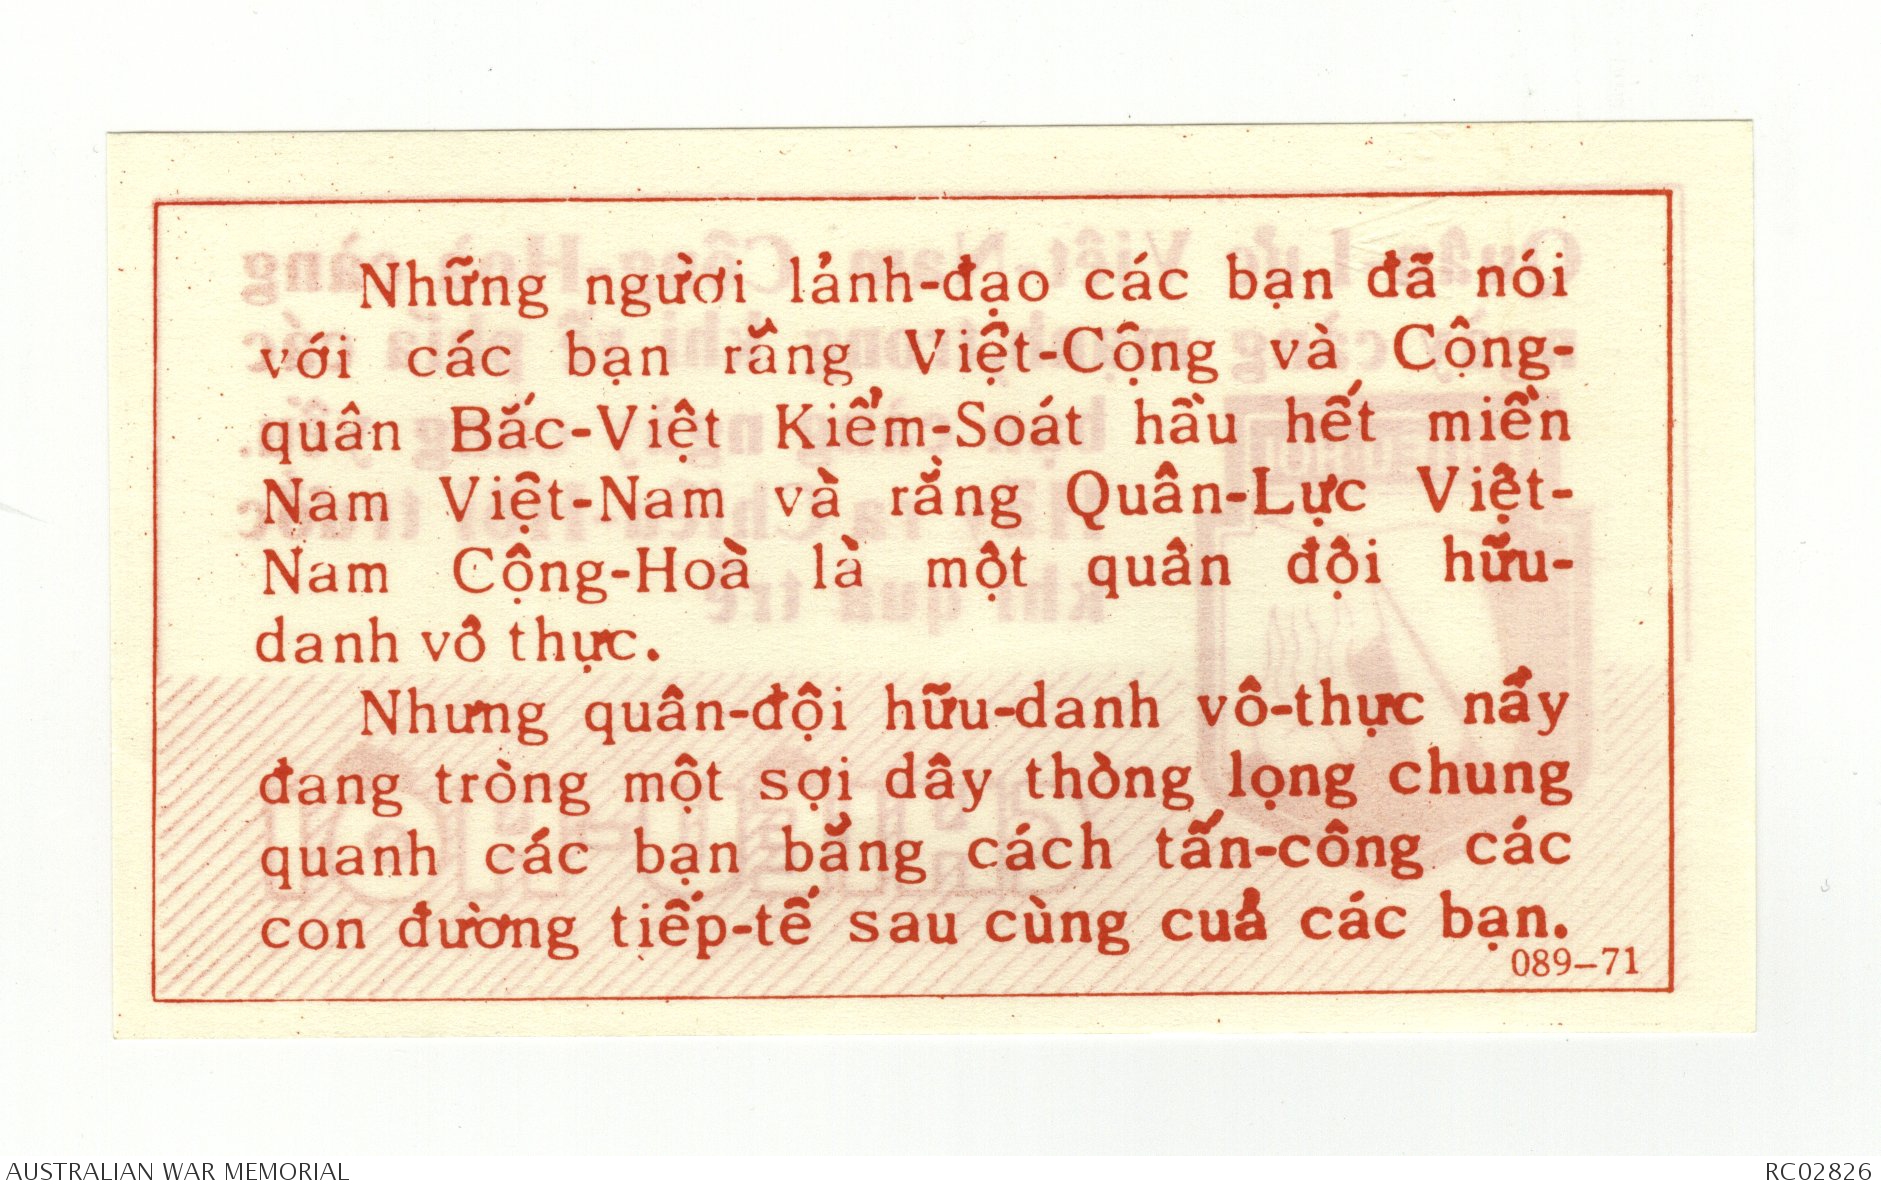 Những người lảnh-đạo các bạn đã nói
với các bạn rằng Việt-Cộng và Cộng-
quân Bắc-Việt Kiểm-Soát hầu hết miền
Nam Việt-Nam và rằng Quân-Lực Việt-
Nam Cộng-Hoà là một quân đội hữu-
danh vô thực.
Nhưng quân-đội hữu-danh vô-thực nầy
đang tròng một sợi dây thòng lọng chung
quanh các bạn bằng cách tấn-công các
con đường tiếp-tế sau cùng cuả các bạn.
089-71
AUSTRALIAN WAR MEMORIAL
RC02826